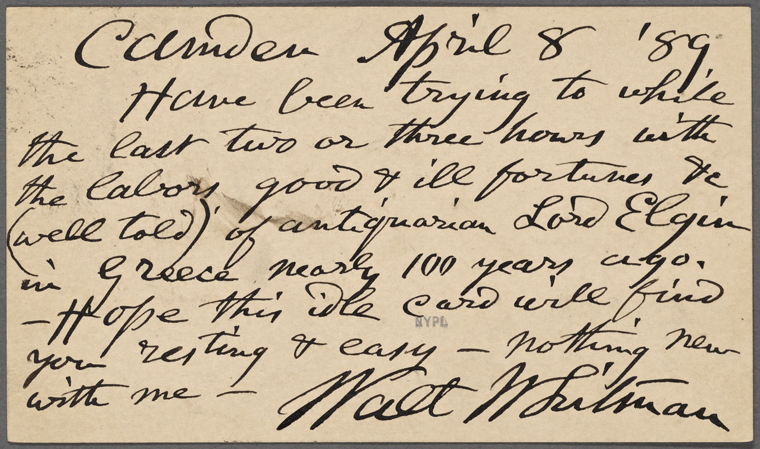 Camden April 8 '89
Have been trying to while
the last two or three hours with
the labors good & ill fortunes &c
(well told) of antiquarian Lord Elgin
in Greece nearly 100 years ago.
— Hope this idle card will find
NYPL
you resting & easy — nothing new
with me — Walt Whitman